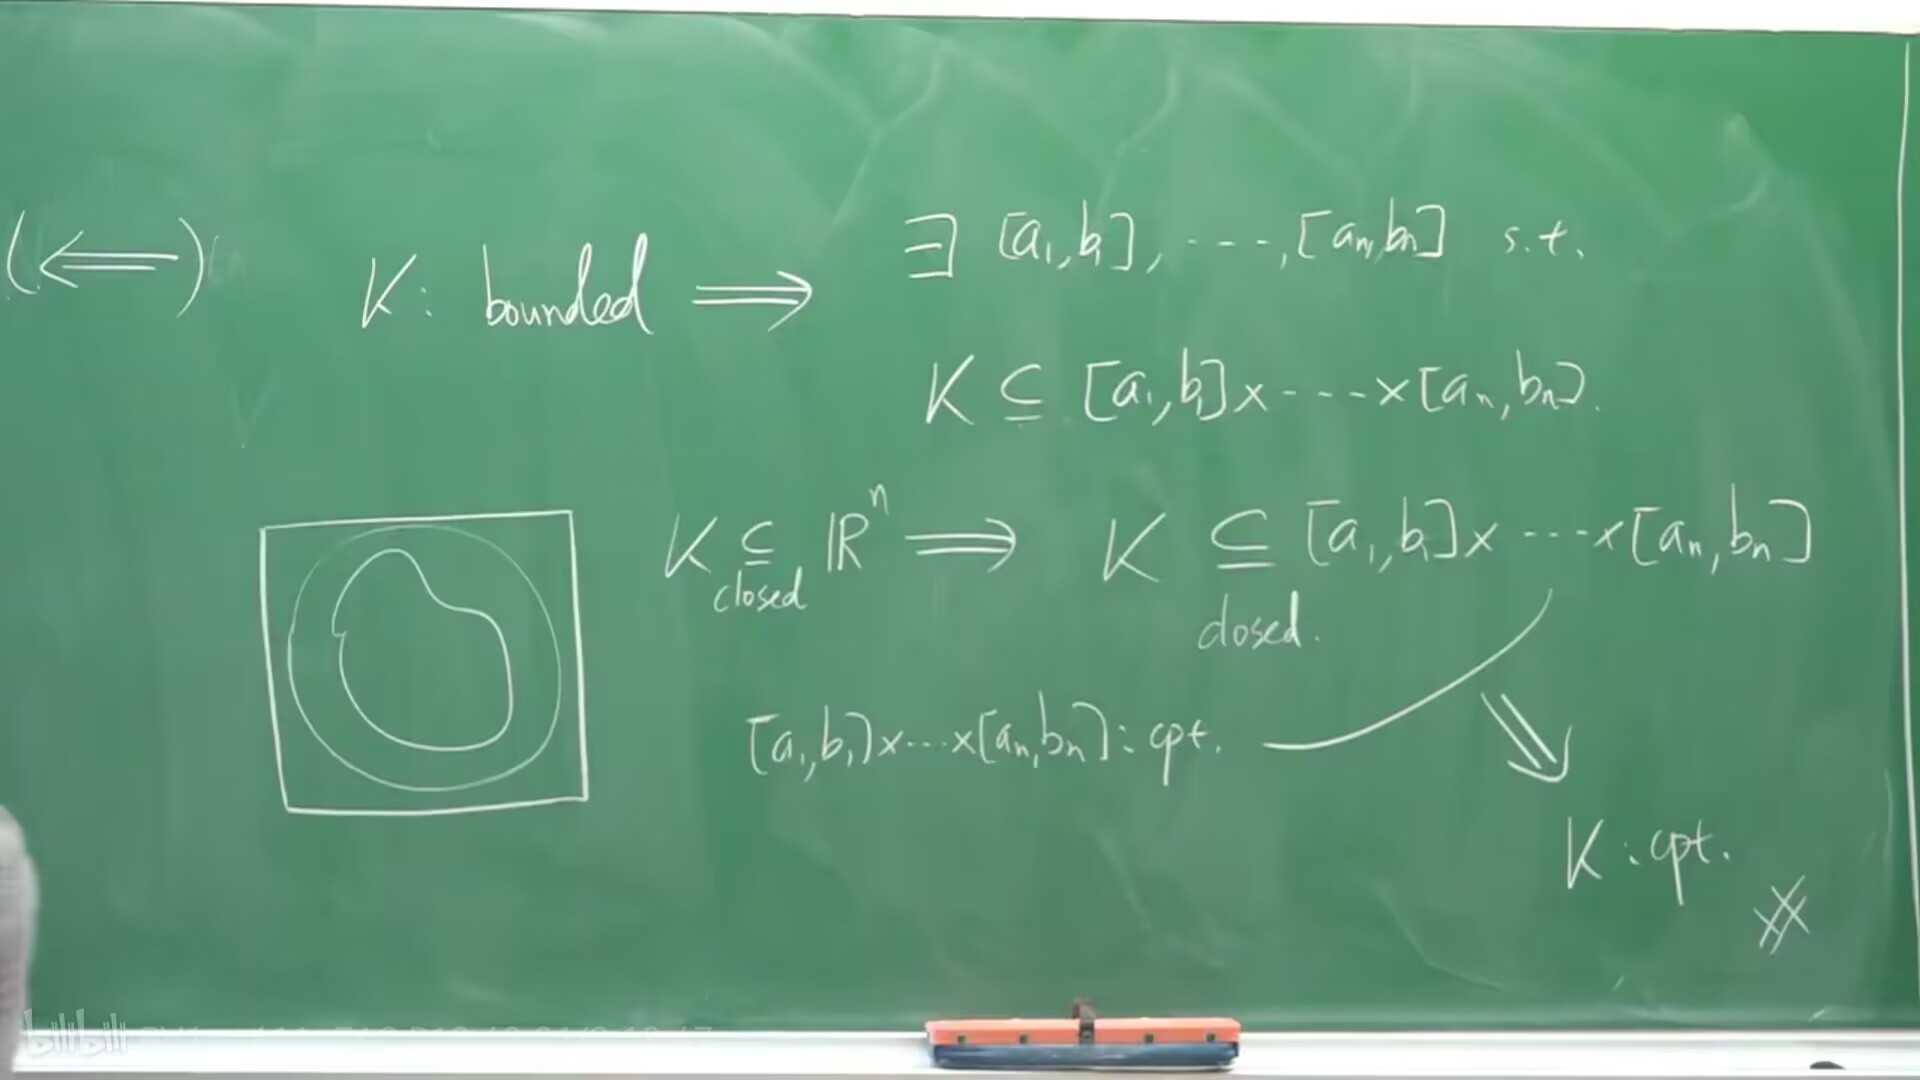 (⟸) K: bounded ⟹ ∃ [a₁,b₁], ----, [aₙ,bₙ] s.t.
K ⊆ [a₁,b₁]×----×[aₙ,bₙ].
K ⊆ ℝⁿ ⟹ K ⊆ [a₁,b₁]×----×[aₙ,bₙ]
closed closed.
[a₁,b₁]×---×[aₙ,bₙ]: cpt.
⟹
K: cpt.
bilibili